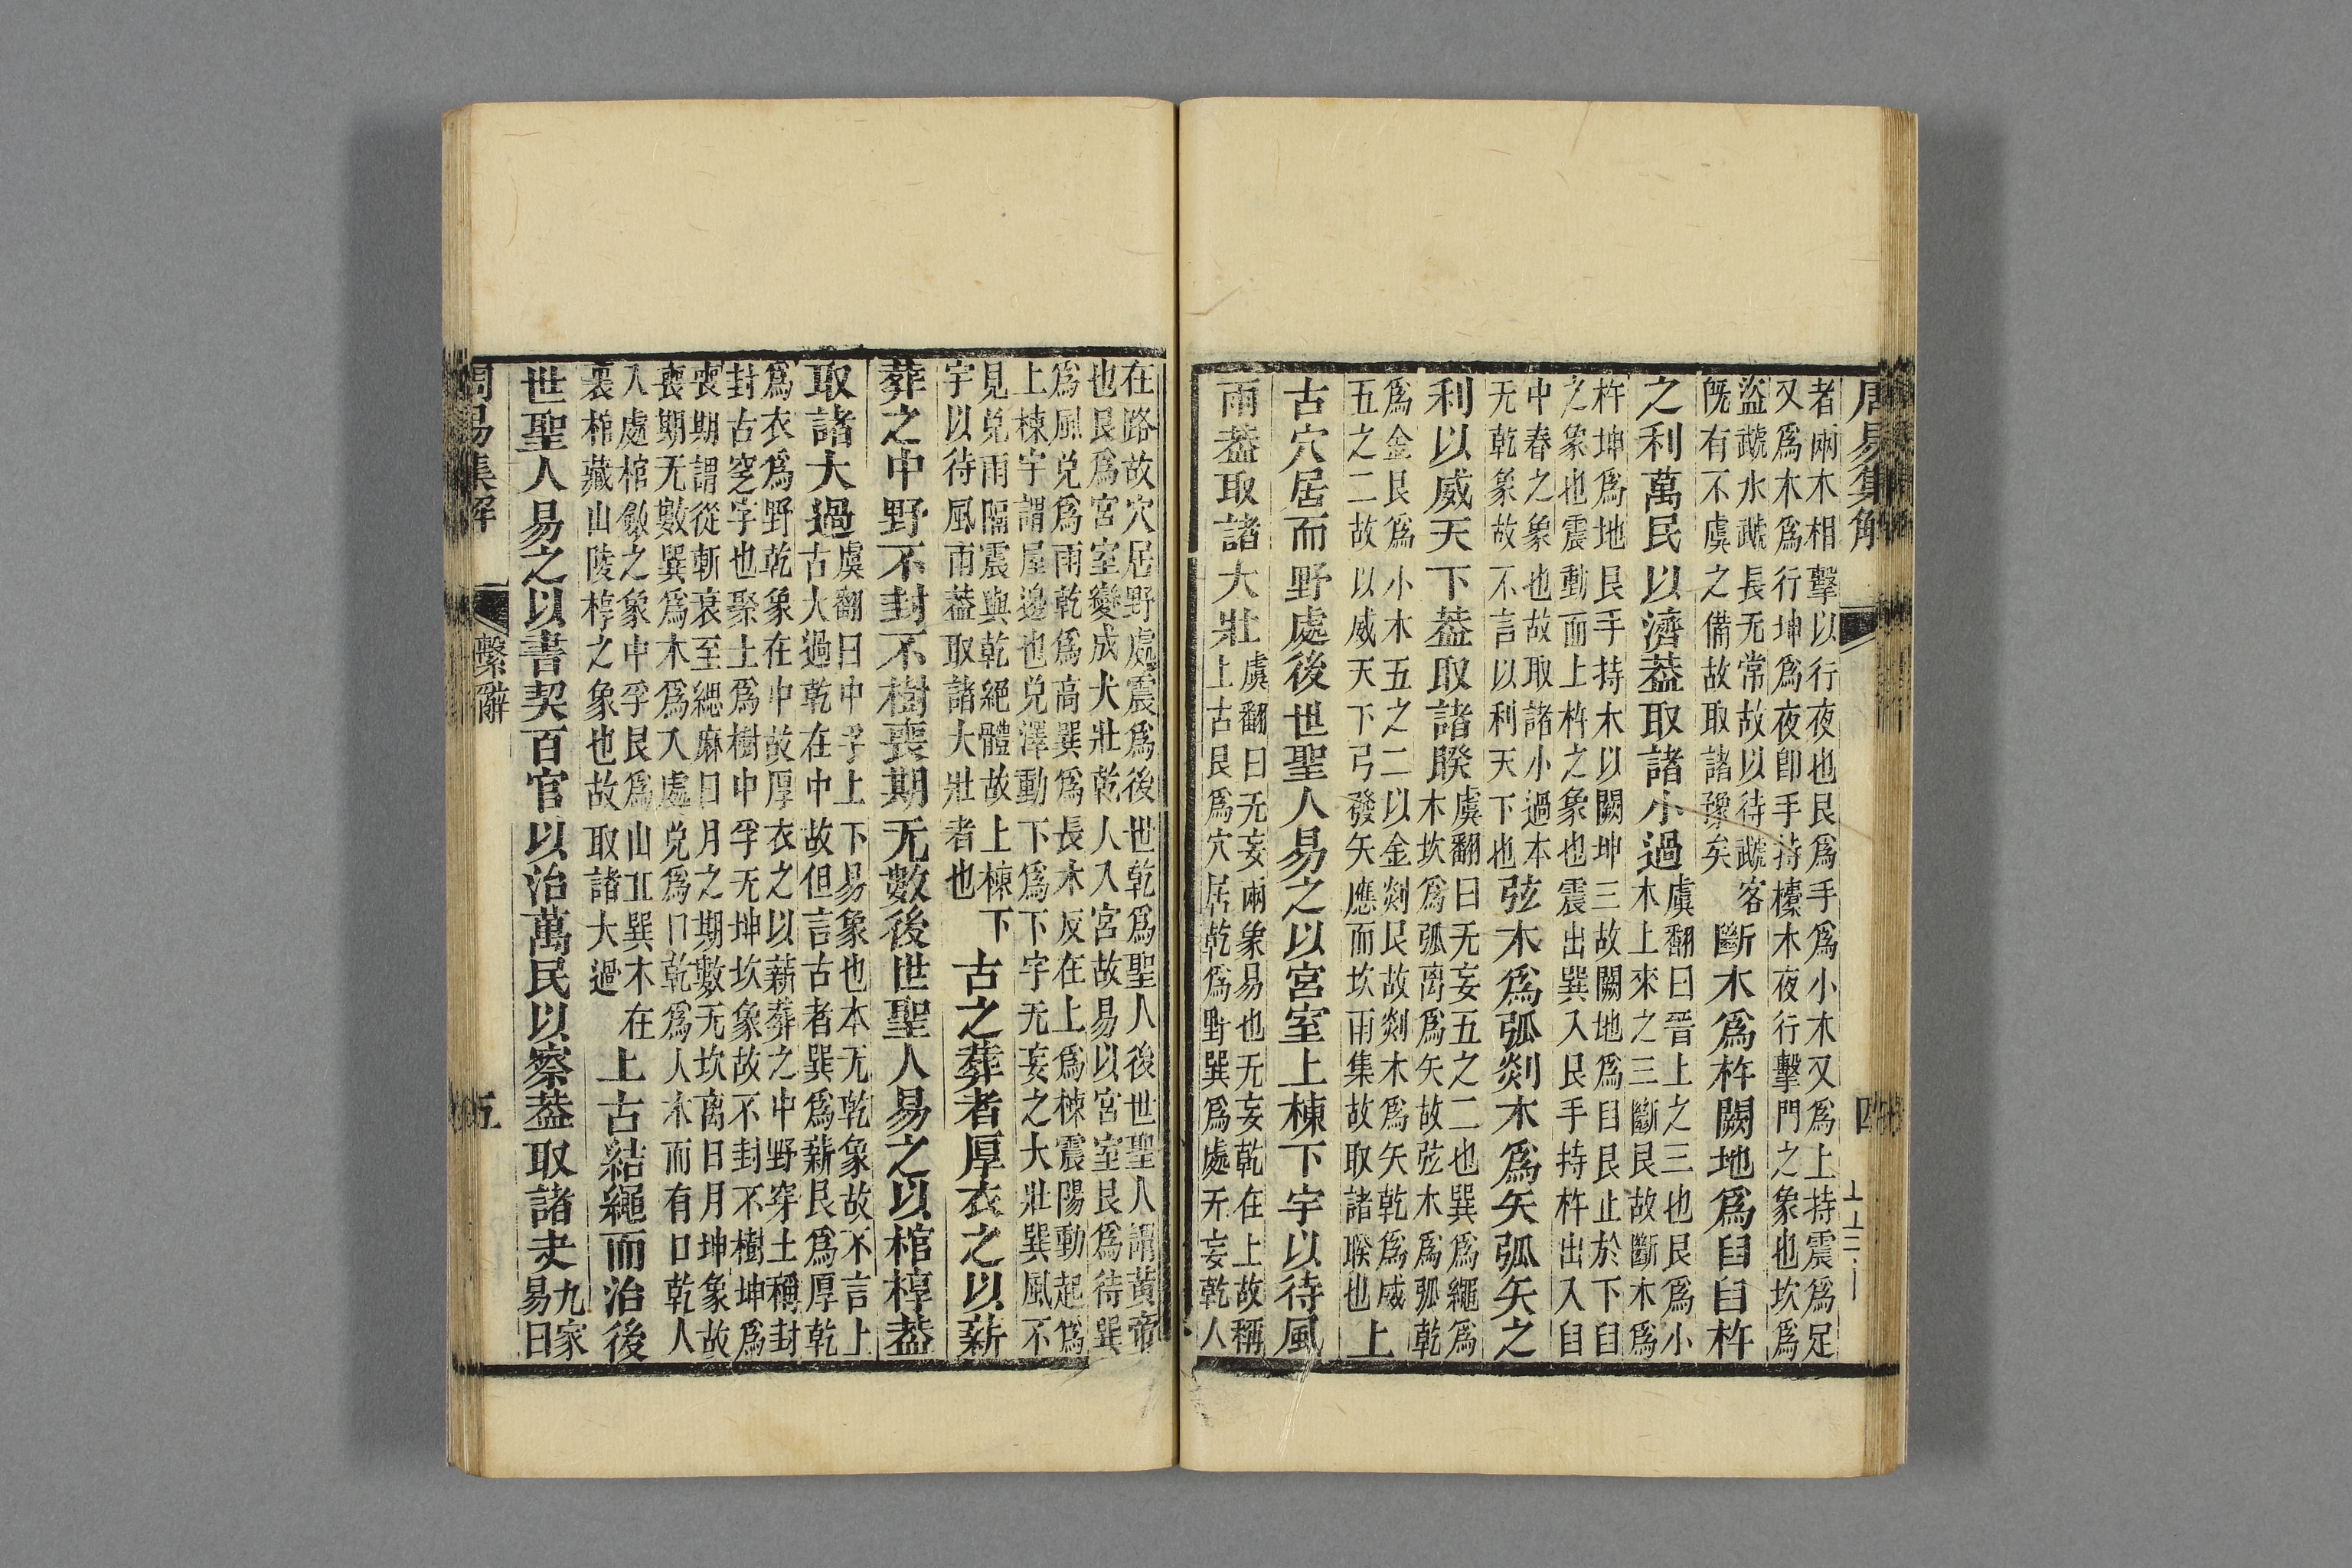 周易集解
四
者兩木相擊以行夜也艮爲手爲小木又爲上持震爲足
又爲木爲行坤爲夜卽手持㯓木夜行擊門之象也坎爲
盜虣水虣長无常故以待虣客
旣有不虞之備故取諸豫矣
斷木爲杵闕地爲臼臼杵
之利萬民以濟葢取諸小過
虞翻曰晉上之三也艮爲小
木上來之三斷艮故斷木爲
杵坤爲地艮手持木以闕坤三故闕地爲臼艮止於下臼
之象也震動而上杵之象也震出巽入艮手持杵出入臼
中舂之象也故取諸小過本
无乾象故不言以利天下也
弦木爲弧剡木爲矢弧矢之
利以威天下葢取諸睽
虞翻曰无妄五之二也巽爲繩爲
木坎爲弧离爲矢故弦木爲弧乾
爲金艮爲小木五之二以金剡艮故剡木爲矢乾爲威
五之二故以威天下弓發矢應而坎雨集故取諸睽也
上
古穴居而野處後世聖人易之以宮室上棟下宇以待風
雨葢取諸大壯
虞翻曰无妄兩象易也无妄乾在上故稱
上古艮爲穴居乾爲野巽爲處无妄乾人
在路故穴居野處震爲後世乾爲聖人後世聖人謂黃帝
也艮爲宮室變成大壯乾人入宮故易以宮室艮爲待巽
爲風兌爲雨乾爲高巽爲長木反在上爲棟震陽動起爲
上棟宇謂屋邊也兌澤動下爲下宇无妄之大壯巽風不
見兌雨隔震與乾絕體故上棟下
宇以待風雨葢取諸大壯者也
古之葬者厚衣之以薪
葬之中野不封不樹喪期无數後世聖人易之以棺椁葢
取諸大過
虞翻曰中孚上下易象也本无乾象故不言上
古大過乾在中故但言古者巽爲薪艮爲厚乾
爲衣爲野乾象在中故厚衣之以薪葬之中野穿土稱封
封古窆字也聚土爲樹中孚无坤坎象故不封不樹坤爲
喪期謂從斬衰至緦麻日月之期數无坎离日月坤象故
喪期无數巽爲木爲入處兌爲口乾爲人木而有口乾人
入處棺斂之象中孚艮爲山丘巽木在
裏棺藏山陵椁之象也故取諸大過
上古結繩而治後
世聖人易之以書契百官以治萬民以察葢取諸夬
九家
易曰
周易集解
繫辭
五